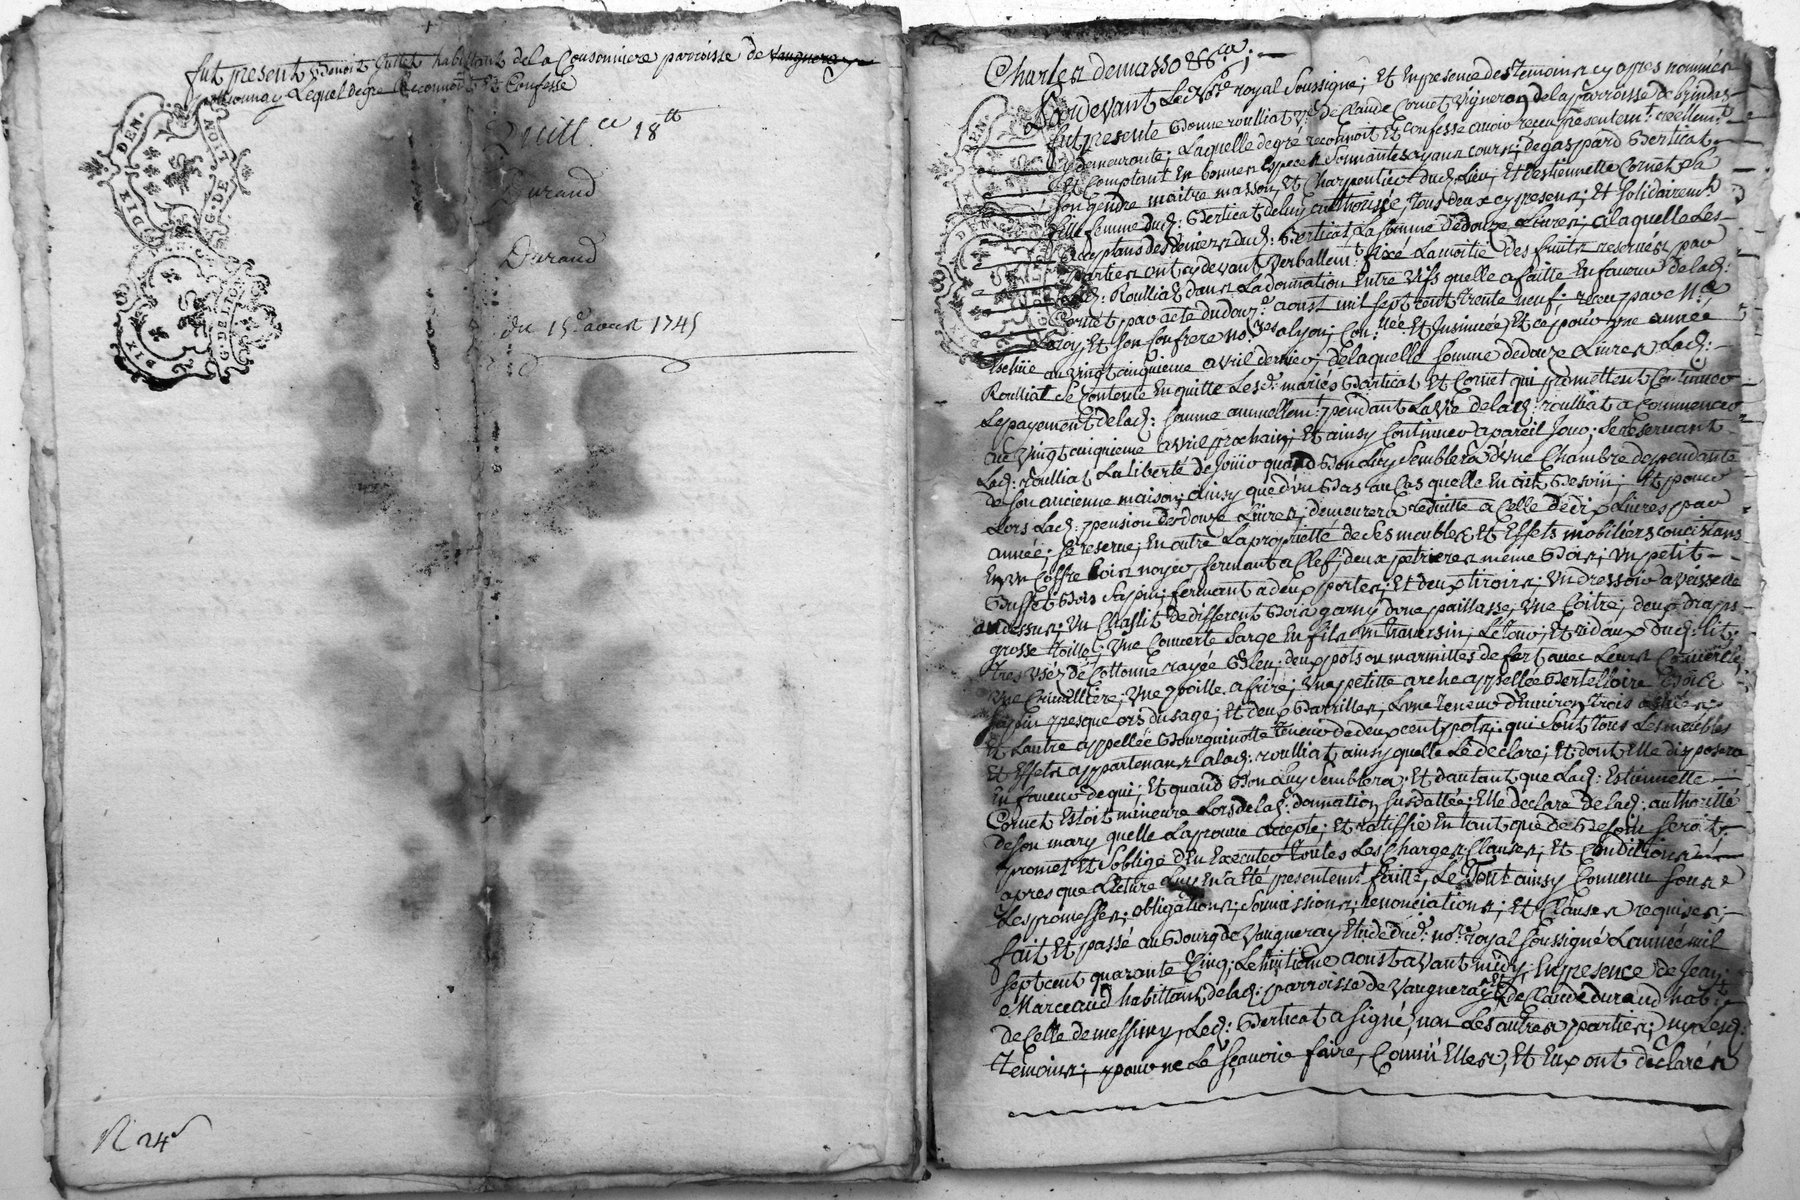 fut present Benoit habittant de la Consonniere parroisse de vaugneray
pollionnay Lequel degré Reconnoit Et Confesse
DIX DEN.
G. DE LION
Quitt.ce 18tt
Durand
Durand
du 15e aoust 1745
DIX DEN.
G. DE LION
N 24
Charles demasso &ca;
Pardevant Led No.re royal Soussigné; Et En presence des temoins cy apres nommés
fut presente Bonne roulliat v.e de Claude Cornet vigneron de la parroisse de brindas
y demeurante; Laquelle degré reconnoit et confesse avoir receu presentem.t reellem.t
Et Comptant En bonnes Especes Sonnantes ayans cours; de gaspard Berticat
Son gendre maitre masson, Et Charpentier dud. Lieu, Et d'estiennette Cornet sa
fille femme dud: Berticat de luy authorisée tous deux cy presens; Et solidairem.t
acceptans des deniers dud: Berticat La somme de douze Livres; a laquelle Les
parties ont cy devant verballem.t fixé La moitié des fruits reservés par
lad: Roulliat dans La donnation Entre vifs quelle a faitte En faveur de lad:
Cornet par acte du aoust mil sept cent trente neuf; receu par M.e
Leroy, Et son Confrere no.res a lyon, Con.llée Et Insinuée, Et ce pour une année
Echüe au vingt cinquieme avril dernier; de laquelle somme de douze Livres Lad:
Roulliat Se Contente En quitte Lesd: mariés Berticat Et Cornet qui promettent Continuer
Le payement de lad: somme annuellem.t pendant La vie de lad: roulliat a Commencer
au vingt cinquieme avril prochain; Et ainsy Continuer a pareil Jour; Se reservant
Lad: roulliat La liberté de Joüir quand Bon Luy Semblera d'une Chambre dependante
de son ancienne maison; ainsy que d'un Bas au Cas quelle En ait Besoin; Et pour
Lors Lad: pension de douze Livres; demeurera reduitte a Celle de dix Livres par
année; Se reserve; En outre La proprietté de Ses meubles Et Effets mobiliers Concistans
En un Coffre bois noyer fermant a Clef; deux petrieres même Bois; un petit
Buffet Bois Sapin; fermant a deux portes; Et deux tiroirs; un dressoir a vaisselle
au dessus; un Chaslit de different Bois garny d'une paillasse, une Coitre; deux draps
grosse toille; une Couverte Sarge En fil un traversin, Le tour; Et ridaux dud: lit
tres usés de Cottonne rayée Bleu; deux pots ou marmittes de fert avec Leurs Couverts;
une Crimelliere; une poille a frire; une petitte arche appellée Bertelloire Bois
Sapin presque ors dusage; Et deux Barrilles, L'une teneur d'environ trois
Et L'autre appellée Bourguinotte teneur de deux cent pots; qui Sont tous Les meubles
Et Effets appartenans a lad: roulliat ainsy quelle Le declare; Et dont Elle disposera
En faveur de qui; Et quand Bon Luy Semblera; Et d'autant que Lad: Estiennette
Cornet Estoit mineure Lors de lad: donnation Susdattée; Elle declare de lad: authorité
de Son mary quelle L'aprouve accepte; Et ratiffie En tant que de Besoin Seroit
promet Et S'oblige d'En Executer toutes Les Charges Clauses; Et Conditions
apres que Lecture Luy En a Eté presentem.t faitte, Le tout ainsy Convenu Sous
Les promesses; obligations; Soumissions; renonciations; Et Clauses requises;
fait Et passé au Bourg de Vaugneray Etude dud: no.re royal Soussigné L'année mil
Sept cent quarante Cinq; Le huitieme aoust avant midy; En presence de Jean
Marceaud habittant de lad: parroisse de Vaugneray Et de Claude durand hab.t
de Celle de messimy, Led: Berticat a Signé; non Les autres parties; ny Lesd:
temoins; pour ne Le Sçavoir faire, Comm' Elles, Et Eux ont déclarés